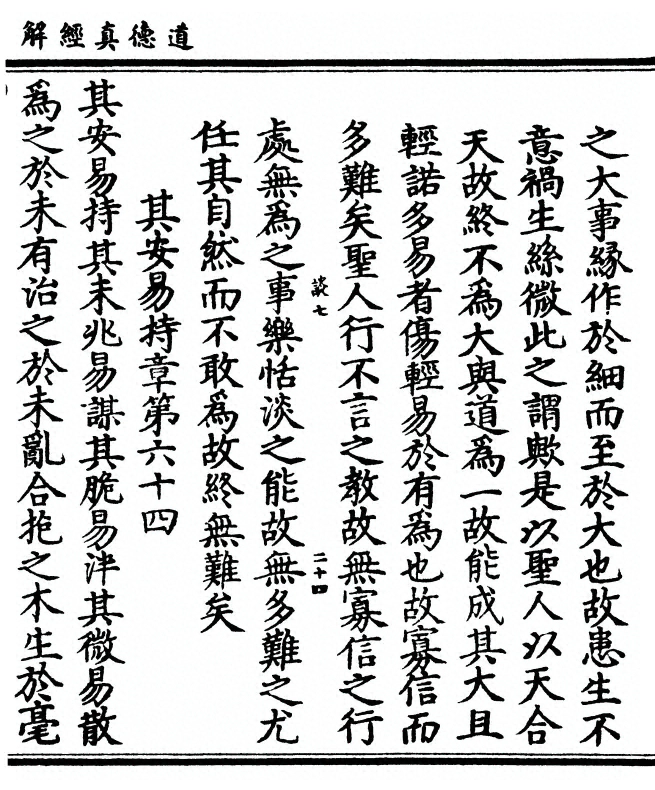 道德真經解
之大事緣作於細而至於大也故患生不
意禍生絲微此之謂歟是以聖人以天合
天故終不為大與道為一故能成其大且
輕諾多易者傷輕易於有為也故寡信而
多難矣聖人行不言之教故無寡信之行
談七 二十四
處無為之事樂恬淡之能故無多難之尤
任其自然而不敢為故終無難矣
其安易持章第六十四
其安易持其未兆易謀其脆易泮其微易散
為之於未有治之於未亂合抱之木生於毫